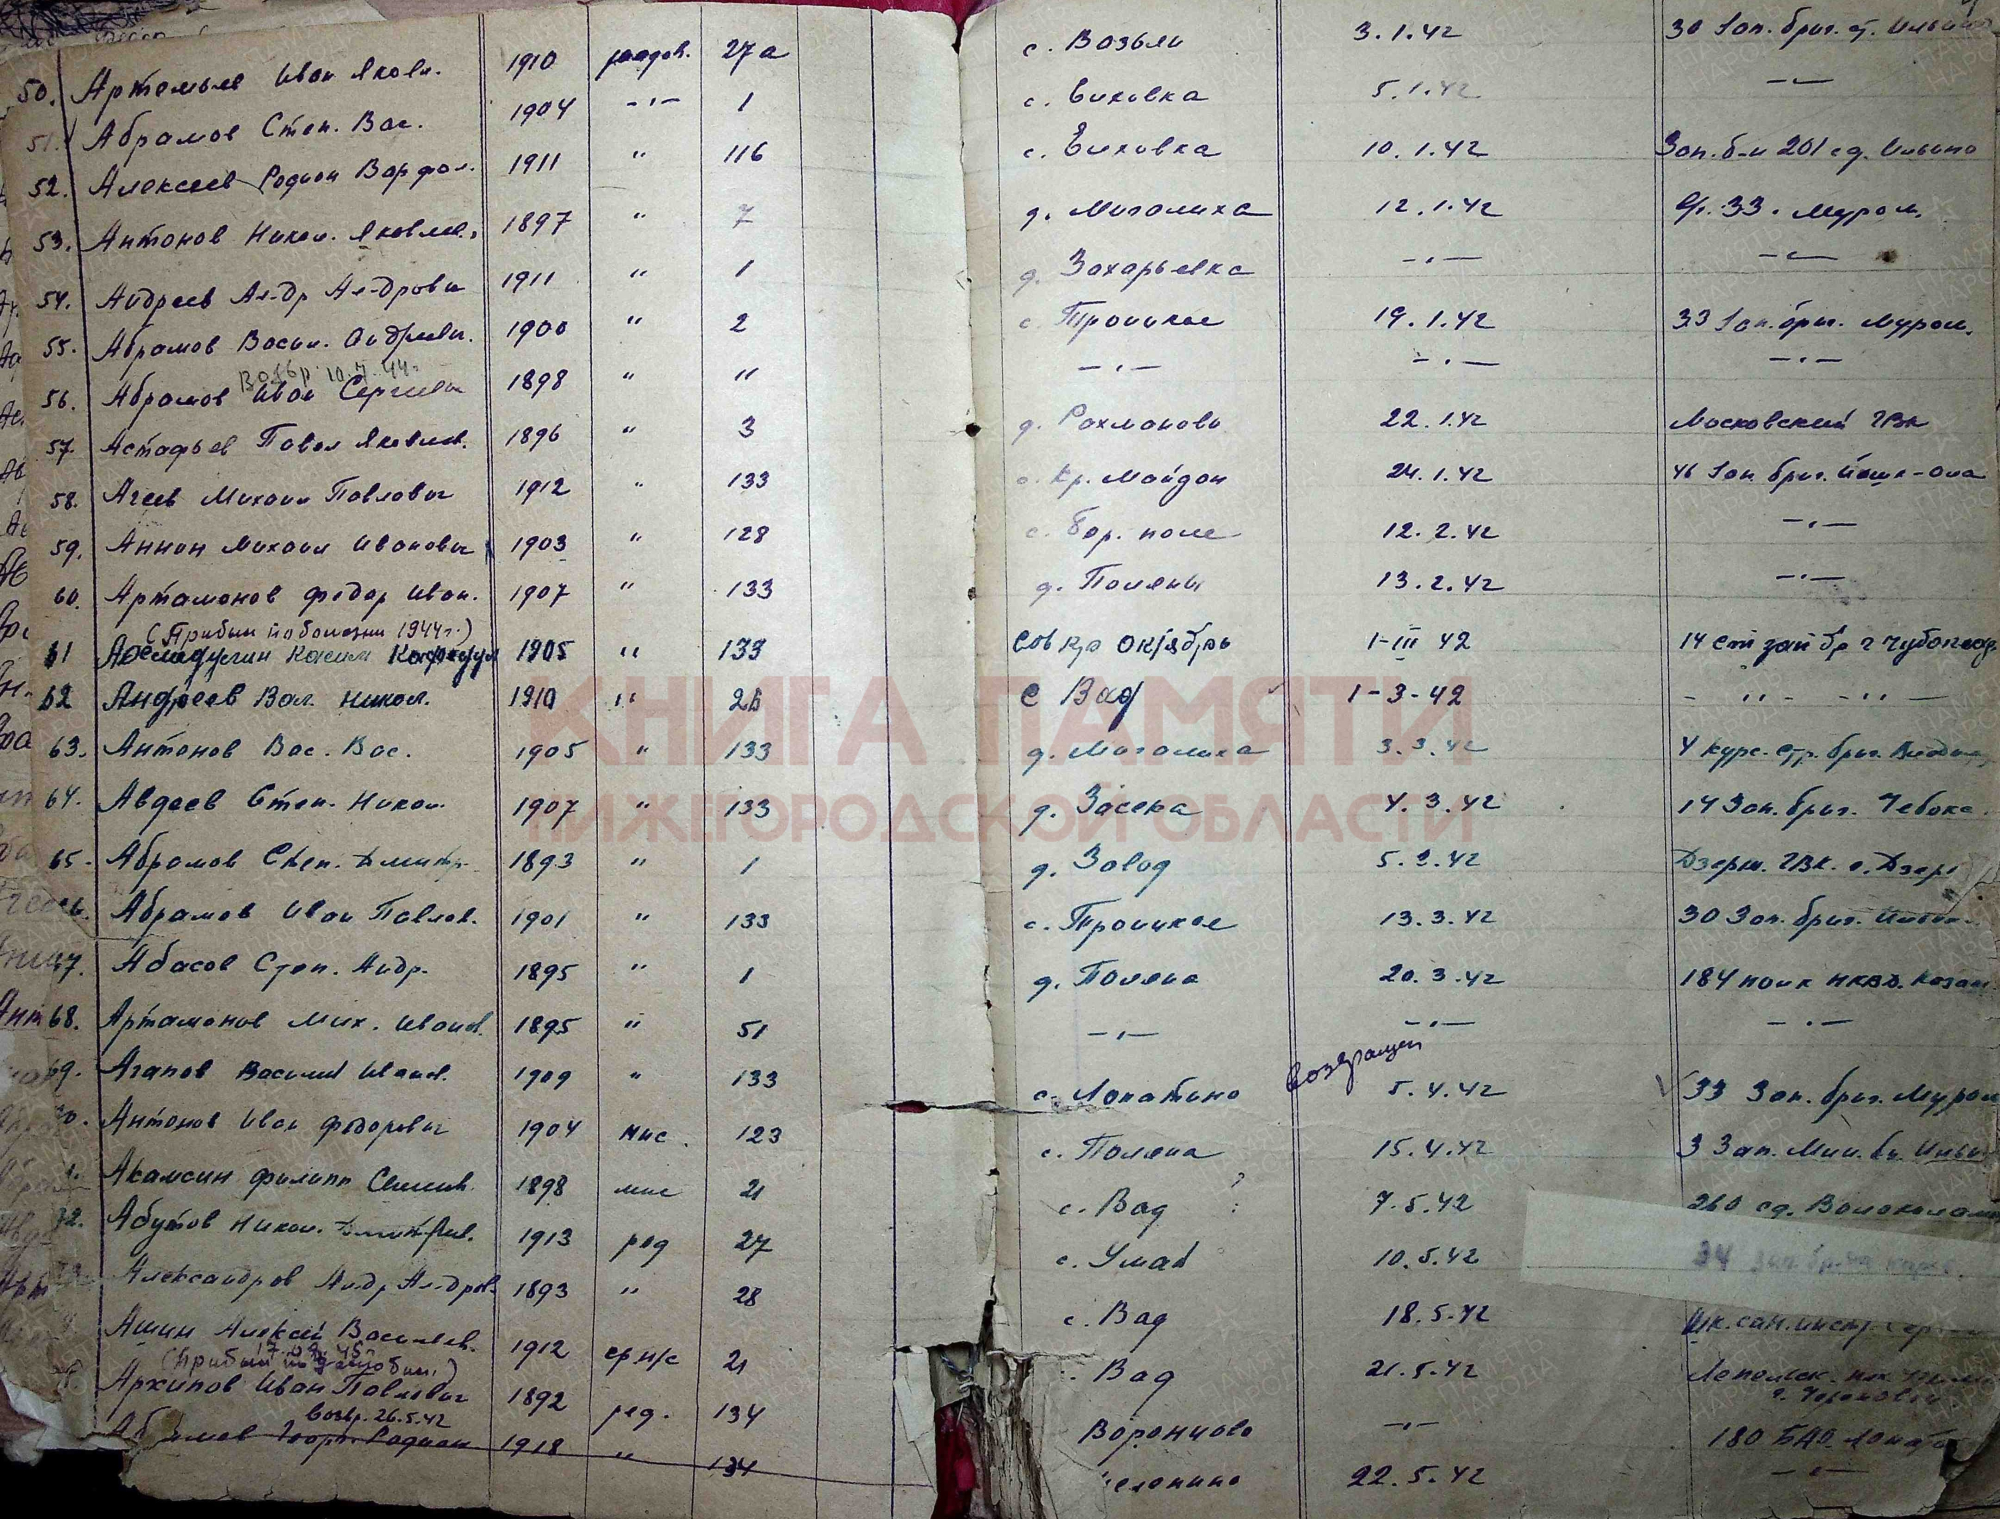 50. Артемьев Иван Яковл. 1910 рядов. 27а с. Возьян 3.1.42 30 Зап. бриг. ст. Ильино
51. Абрамов Степ. Вас. 1904 -"- 1 с. Еиковка 5.1.42 -"-
52. Алексеев Родион Варфол. 1911 " 116 с. Елховка 10.1.42 Зап. б-н 201 сд. Ильино
53. Антонов Никол. Яковлев. 1897 " 7 д. Миголиха 12.1.42 бр. 33. Муром.
54. Андреев Ал-др Ал-дрович 1911 " 1 д. Захарьевка -"- -"-
55. Абрамов Васил. Андреевич. 1900 " 2 с. Троицкое 19.1.42 33 Зап. бриг. Муром.
Возвр. 10.7.44г
56. Абрамов Иван Сергеевич 1898 " " -"- -"- -"-
57. Астафьев Павел Яковлев. 1896 " 3 д. Рахманово 22.1.42 Московский ГВК
58. Агеев Михаил Павлович 1912 " 133 с. Кр. Майдан 24.1.42 46 Зап. бриг. Йошк-Ола
59. Аннин Михаил Иванович 1903 " 128 с. Бор. поле 12.2.42 -"-
60. Артамонов Федор Иван. 1907 " 133 д. Поляны 13.2.42 -"-
(Прибыл по болезни 1944г.)
61 Касим 1905 " 133 Совхоз Октябрь 1-III 42 14 Стр зап бр г Чубоксар
62 Андреев Вал. Никол. 1910 " 26 с Вад 1-3-42 - " - - " -
63. Антонов Вас. Вас. 1905 " 133 д. Миголиха 3.3.42 4 курс. стр. бриг. Владим
64. Авдеев Степ. Никол. 1907 " 133 д. Засека 4.3.42 14 Зап. бриг. Чебокс.
65. Абрамов Степ. Дмитр. 1893 " 1 д. Завод 5.3.42 Дзерж. ГВК. г. Дзер
Абрамов Иван Павлов. 1901 " 133 с. Троицкое 13.3.42 30 Зап. бриг. Ильин
67. Абасов Степ. Андр. 1895 " 1 д. Поляна 20.3.42 184 полк НКВД. Казан
68. Артамонов Мих. Иванов. 1895 " 51 -"- -"- -"-
69. Агапов Василий Иванов. 1909 " 133 с. Лопатино возвращен 5.4.42 33 Зап. бриг. Муром
70. Антонов Иван Федорович 1904 мнс. 123 с. Поляна 15.4.42 3 Зап. Мин. бн. Ильин
1. Акамсин Филипп Семенов. 1898 мнс 21 с. Вад ? 7.5.42 260 сд. Волоколамск
72. Абутов Никол. Дмитриев. 1913 ряд 27 с. Умай 10.5.42 34 Зап бр
73. Александров Ал-др Ал-дров. 1893 " 28 с. Вад 18.5.42 Шк. сан. инстр. Сер
Ашин Алексей Васильев. 1912 ср н/с 21 Вад 21.5.42
Архипов Иван Павлович 1892 ряд. 134 Воронцово -"- 180 БАО Лопат
возвр. 26.5.42
Абрамов Георг. Родион 1918 " 134 22.5.42 -"-
КНИГА ПАМЯТИ
НИЖЕГОРОДСКОЙ ОБЛАСТИ